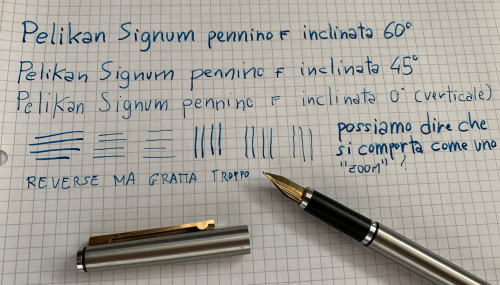 Pelikan Signum pennino F inclinata 60°
Pelikan Signum pennino F inclinata 45°
Pelikan Signum pennino F inclinata 0° (verticale)
possiamo dire che
si comporta come uno
"zoom" !
REVERSE MA GRATTA TROPPO